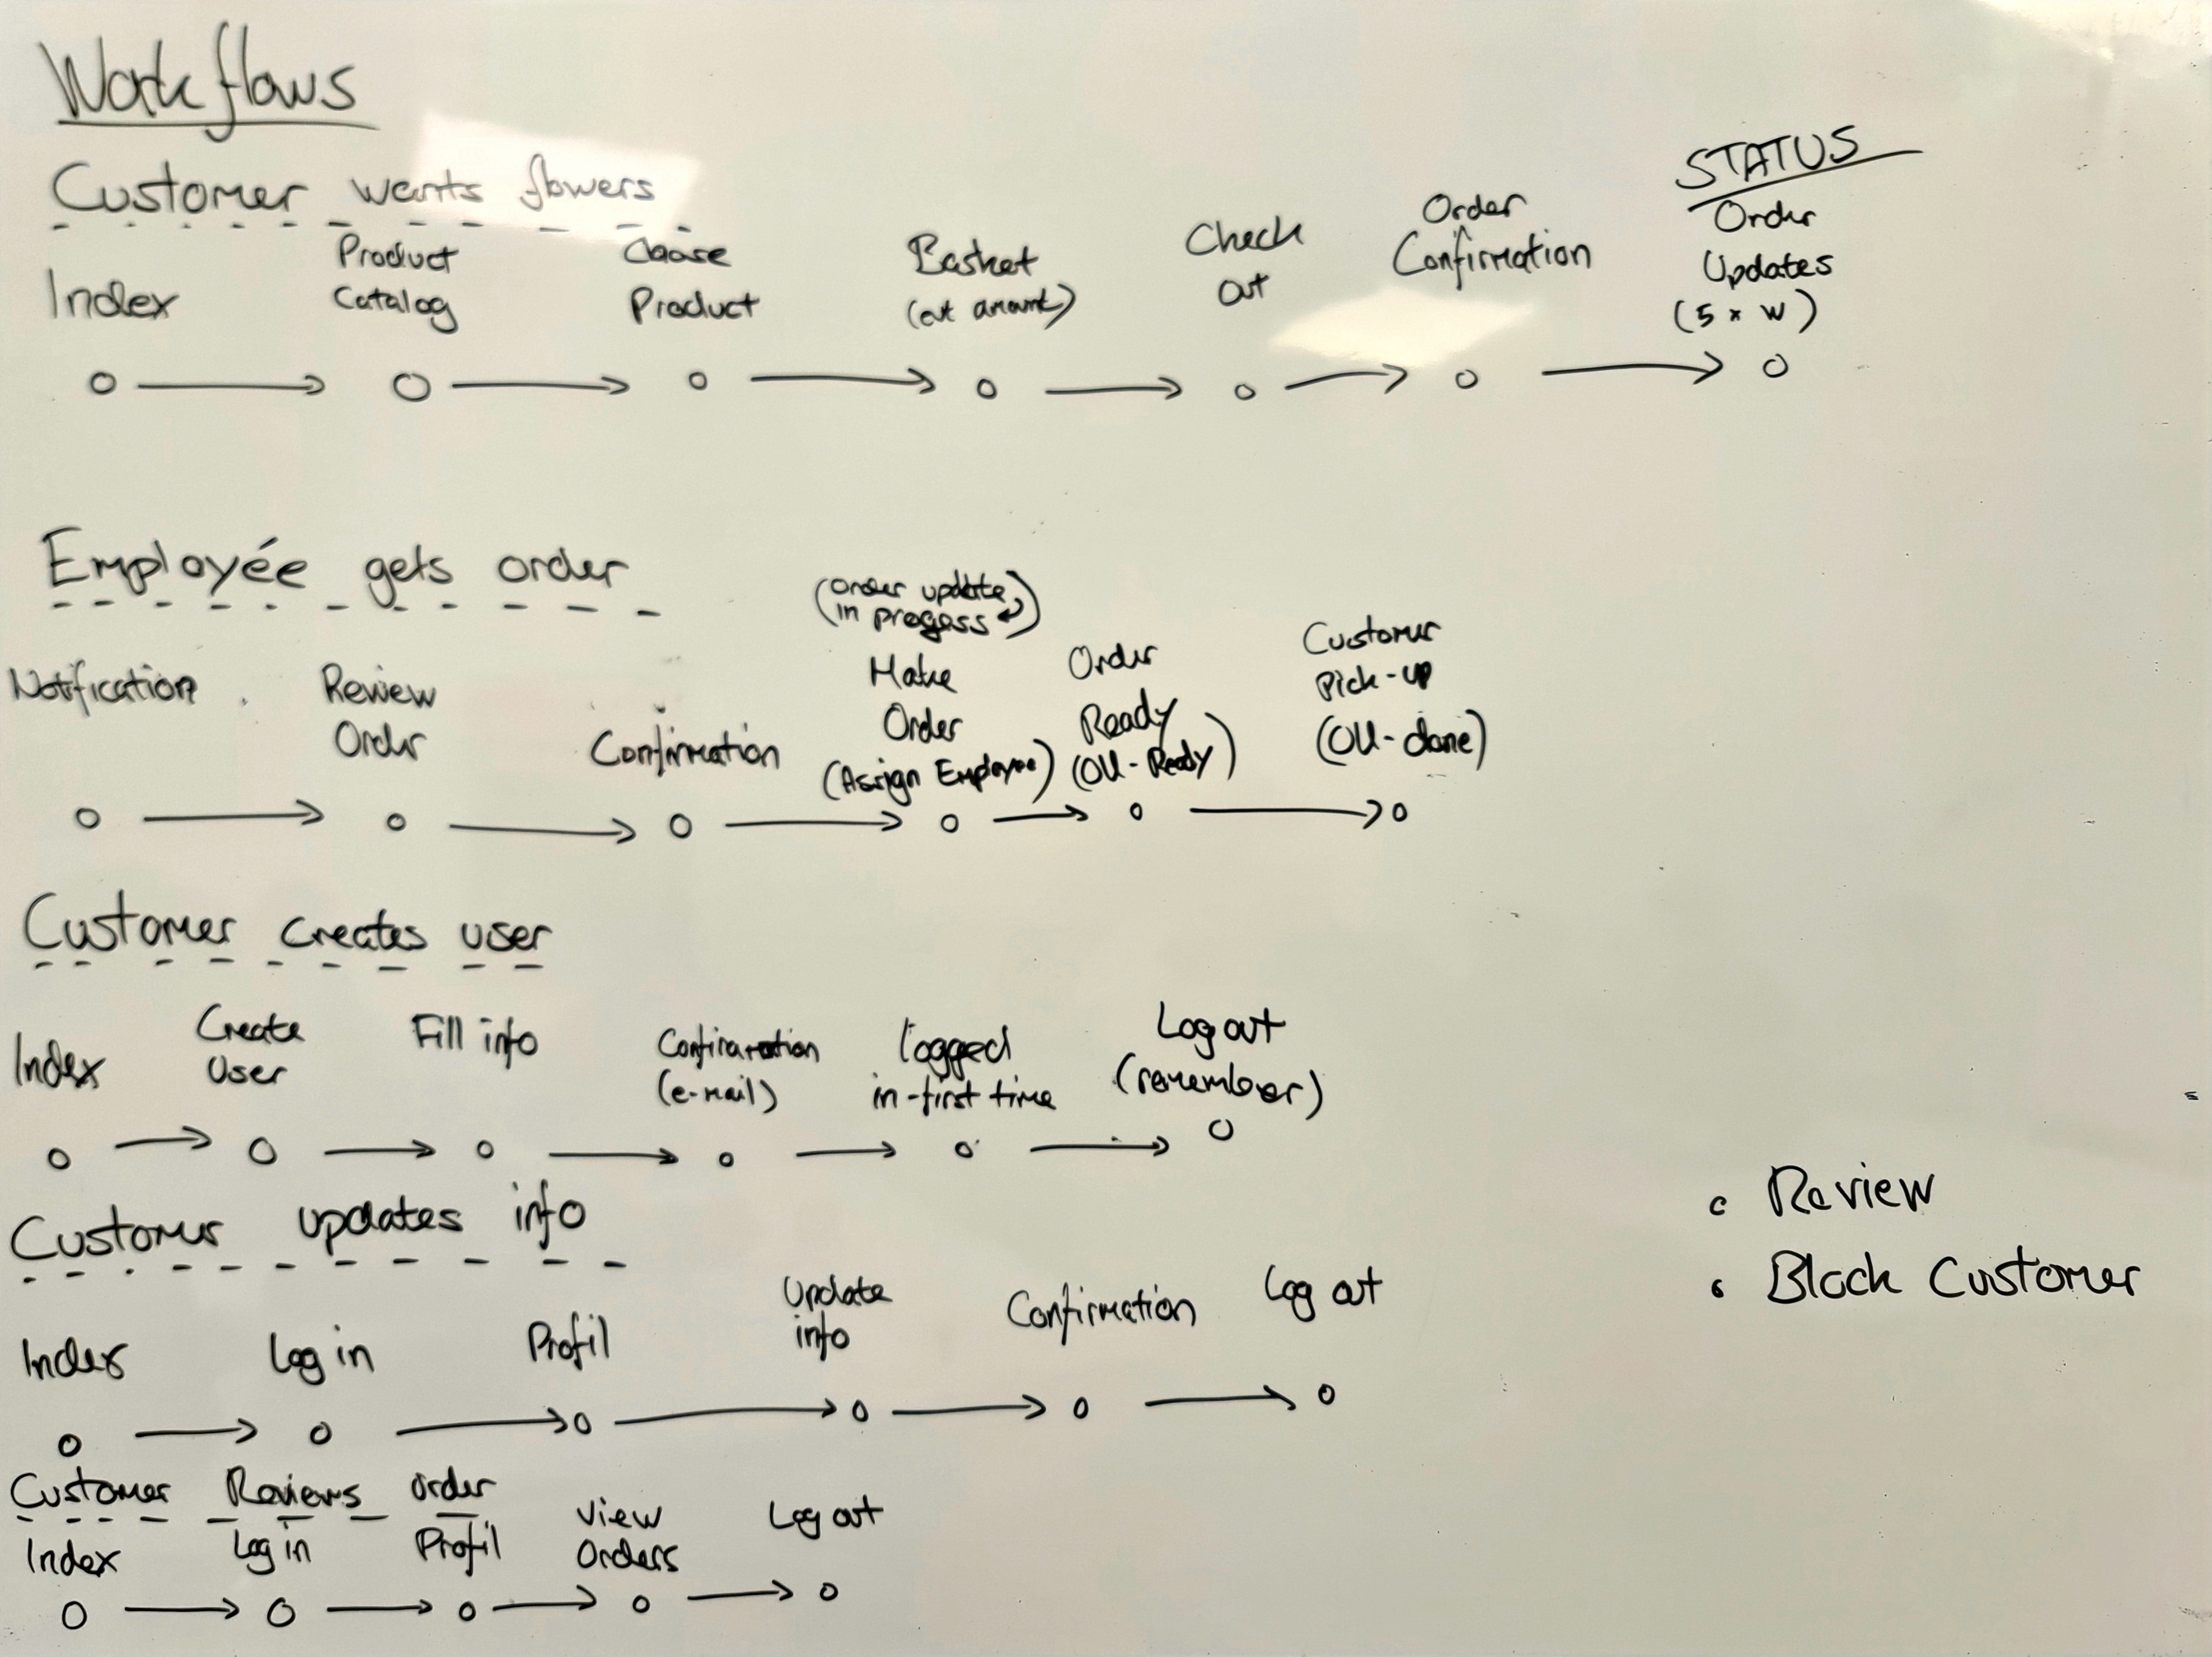 Workflows
Customer wants flowers
STATUS
Index
Product
Catalog
Choose
Product
Basket
(evt amount)
Check
out
Order
Confirmation
Order
Updates
(5 x W)
Employée gets order
(order update
in progess ↲)
Notification
Review
Order
Confirmation
Make
Order
(Assign Employee)
Order
Ready
(OU-Ready)
Customer
Pick-up
(OU-done)
Customer creates user
Index
Create
User
Fill info
Confirmation
(e-mail)
logged
in-first time
Log out
(remember)
Customer updates info
Index
Log in
Profil
Update
info
Confirmation
Log out
• Review
• Block Customer
Customer Reviews order
Index
Log in
Profil
View
Orders
Log out